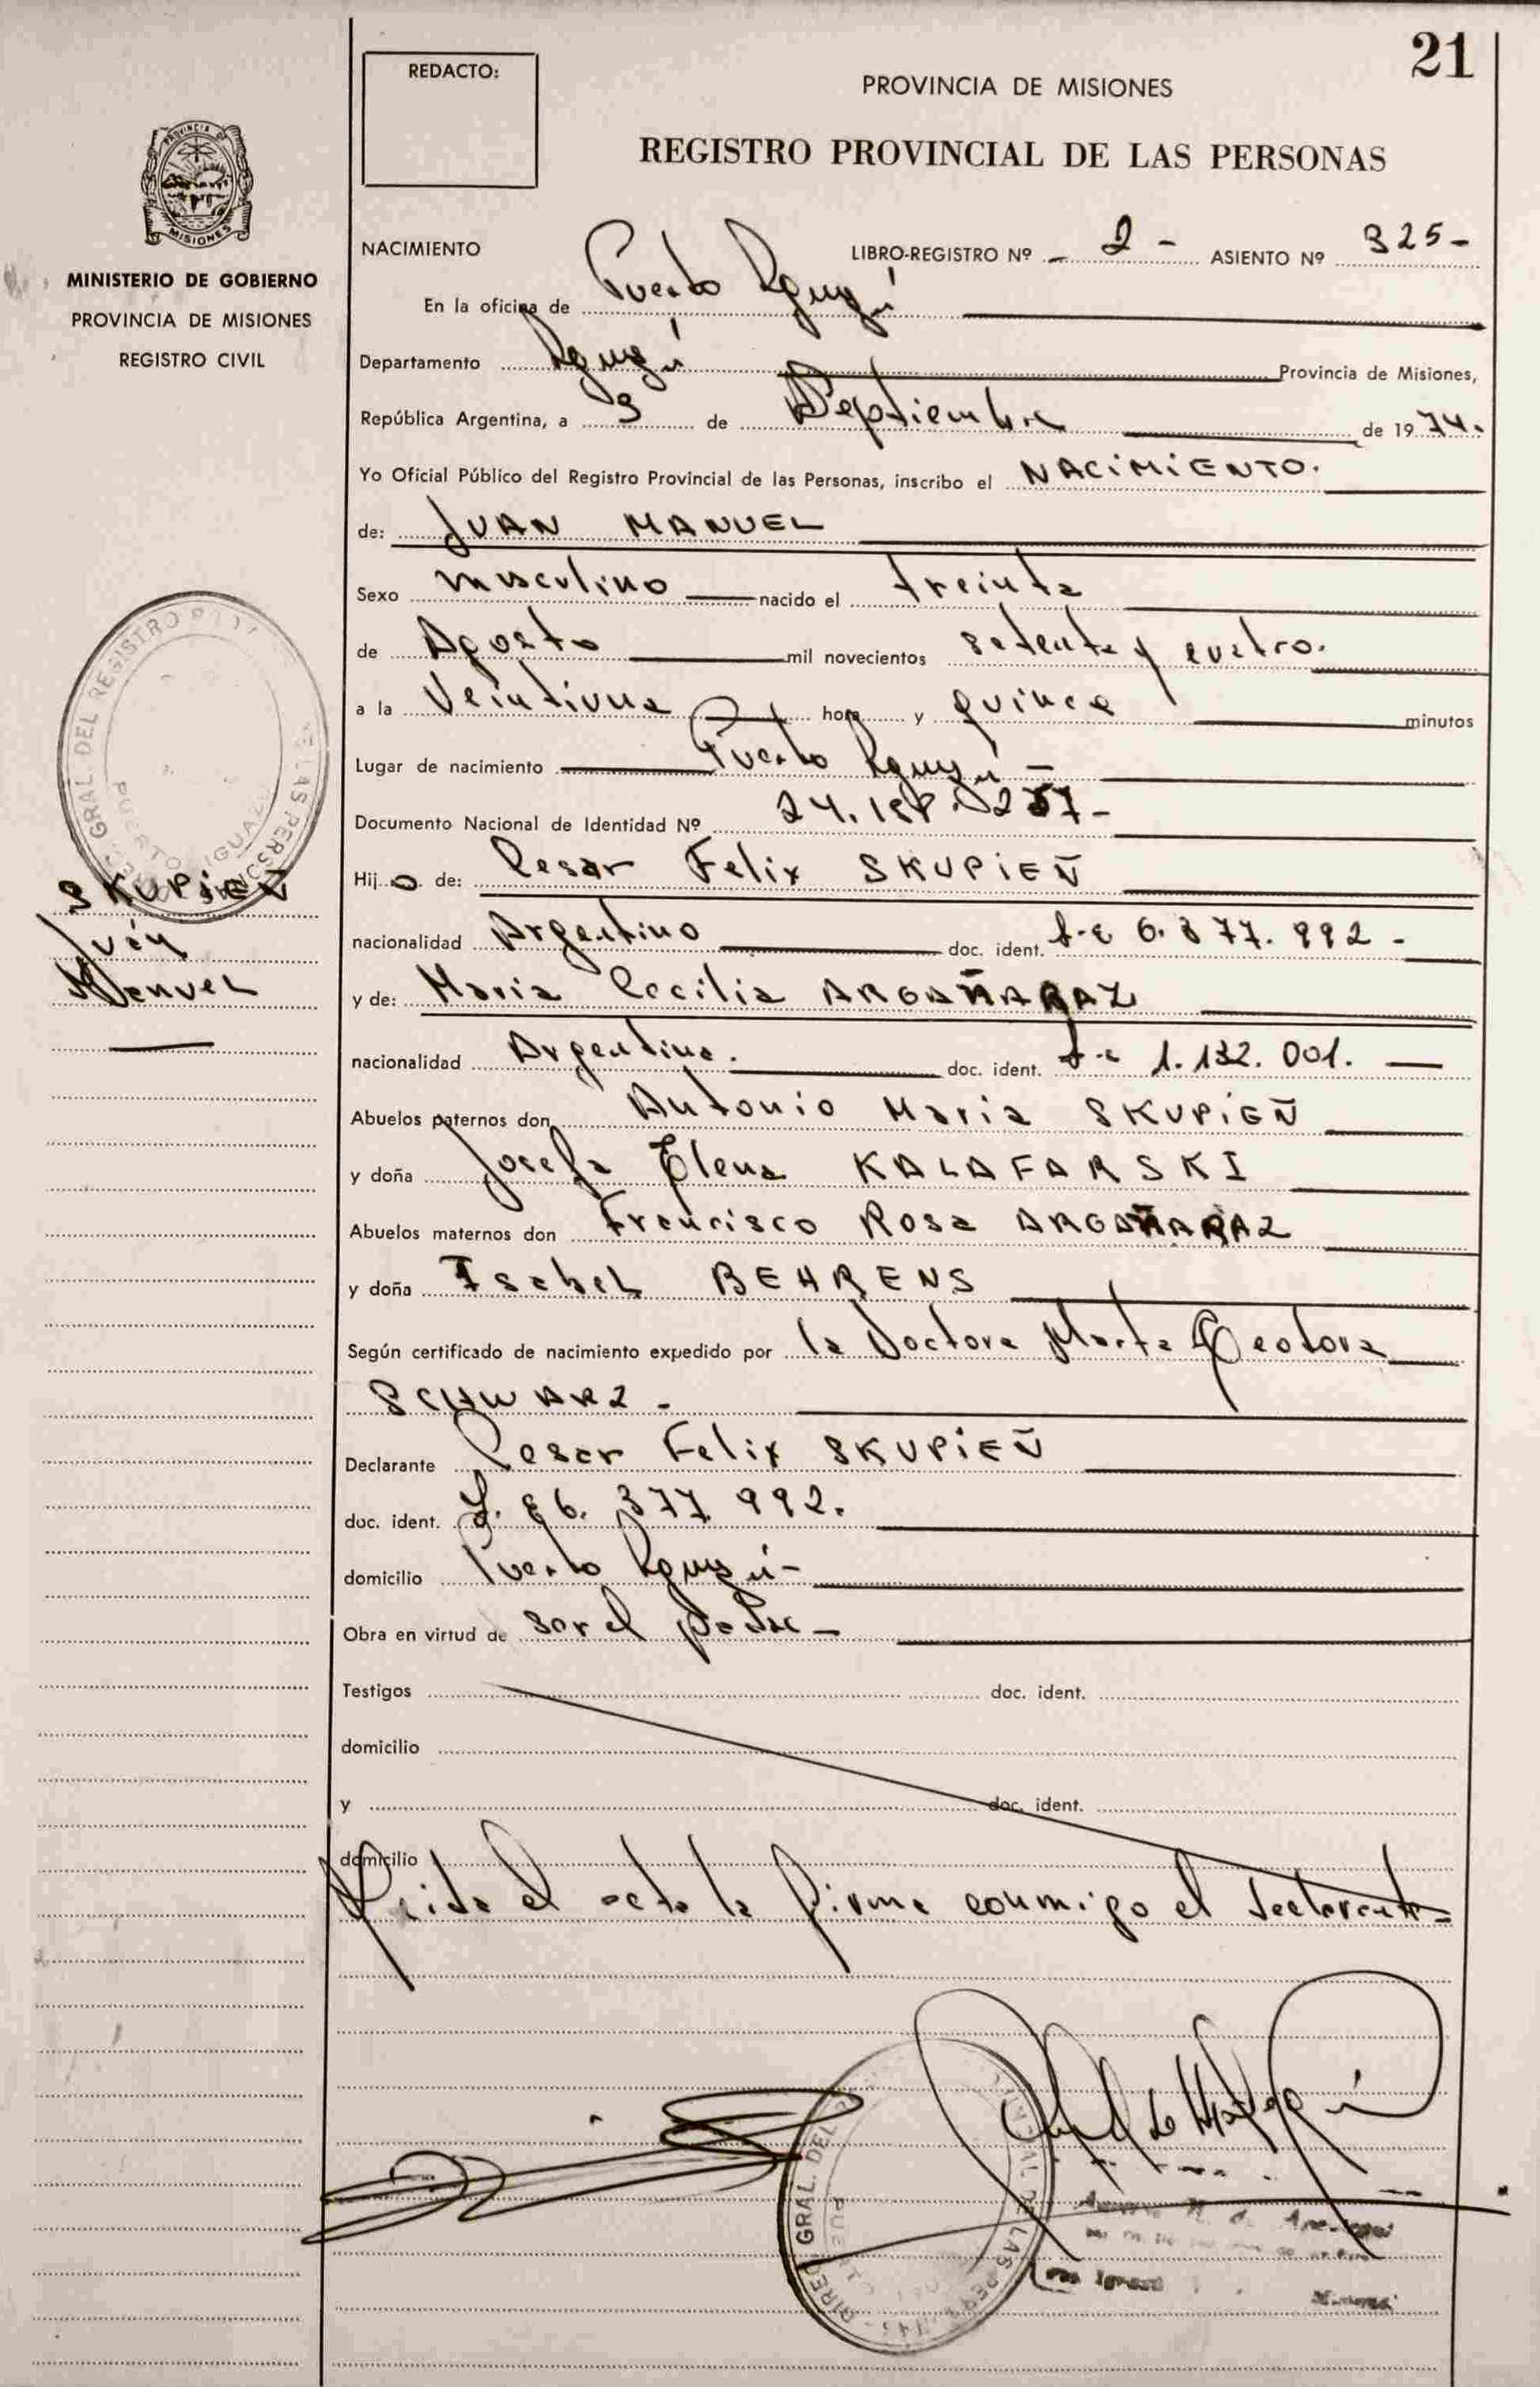 21
REDACTO:
PROVINCIA DE MISIONES
REGISTRO PROVINCIAL DE LAS PERSONAS
PROVINCIA DE
MISIONES
MINISTERIO DE GOBIERNO
PROVINCIA DE MISIONES
REGISTRO CIVIL
NACIMIENTO LIBRO-REGISTRO Nº 2 - ASIENTO Nº 325-
En la oficina de Puerto Iguazú
Departamento Iguazú Provincia de Misiones,
República Argentina, a 3 de Septiembre de 1974.
Yo Oficial Público del Registro Provincial de las Personas, inscribo el NACIMIENTO.
de: JUAN MANUEL
Sexo masculino nacido el treinta
de Agosto mil novecientos setenta y cuatro.
a la Veintiuna hora y quince minutos
Lugar de nacimiento Puerto Iguazú -
Documento Nacional de Identidad Nº 24.
Hijo de: Cesar Felix SKUPIEÑ
nacionalidad Argentino doc. ident. 6.377.992 -
y de: Maria Cecilia ARGAÑARAZ
nacionalidad Argentina. doc. ident. 1.132.001.
Abuelos paternos don Antonio Maria SKUPIEÑ
y doña Josefa Elena KALAFARSKI
Abuelos maternos don Francisco Rosa ARGAÑARAZ
y doña Isabel BEHRENS
Según certificado de nacimiento expedido por la Doctora Marta Teodora
SCHWARZ -
Declarante Cesar Felix SKUPIEÑ
doc. ident. L. E 6. 377. 992.
domicilio Puerto Iguazú -
Obra en virtud de ser el padre -
Testigos doc. ident.
domicilio
y doc. ident.
domicilio
Leida el acta la firma conmigo el declarante =
SKUPIEÑ
Juan
Manuel
GRAL. DEL REGISTRO
DE LAS PERSONAS
PUERTO IGUAZU
DIREC. GRAL. DEL
DE LAS PERSONAS